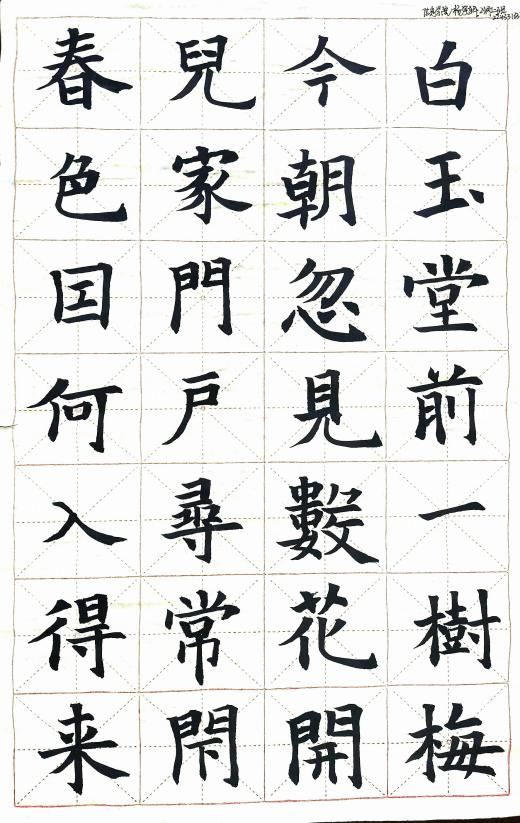 白玉堂前一樹梅
今朝忽見數花開
兒家門戶尋常閇
春色囙何入得来